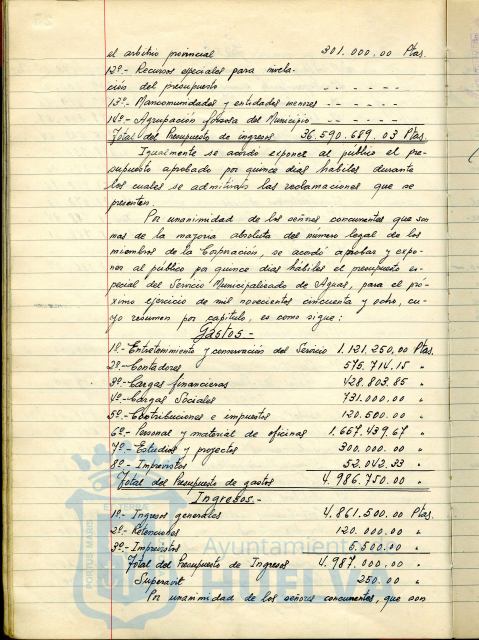 el arbitrio provincial 301.000.00 Ptas.
12º.- Recursos especiales para nivela-
ción del presupuesto - - - - -
13º.- Mancomunidades y entidades menores - - - - -
14º.- Agrupación forzosa del Municipio - - - - -
Total del Presupuesto de ingresos 36.590.689.03 Ptas.
Igualmente se acordó exponer al público el pre-
supuesto aprobado por quince dias hábiles durante
los cuales se admitirán las reclamaciones que se
presenten.
Por unanimidad de los señores concurrentes que son
mas de la mayoria absoluta del número legal de los
miembros de la Corporación, se acordó aprobar y expo-
ner al público por quince dias hábiles el presupuesto es-
pecial del Servicio Municipalizado de Aguas, para el pró-
ximo ejercicio de mil novecientos cincuenta y ocho, cu-
yo resumen por capítulo, es como sigue:
Gastos.-
1º.- Entretenimiento y conservación del Servicio 1.121.250,00 Ptas.
2º.- Contadores 575.714.15 "
3º.- Cargas financieras 428.803.85 "
4º.- Cargas Sociales 731.000.00 "
5º.- Contribuciones e impuestos 120.500.00 "
6º.- Personal y material de oficinas 1.657.439.67 "
7º.- Estudios y proyectos 300.000.00 "
8º.- Imprevistos 52.042.33 "
Total del Presupuesto de gastos 4.986.750.00 "
Ingresos.-
1º.- Ingresos generales 4.861.500.00 Ptas.
2º.- Retenciones 120.000.00 "
3º.- Imprevistos 5.500.00 "
Total del Presupuesto de Ingresos 4.987.000.00 "
Superavit 250.00 "
Por unanimidad de los señores concurrentes, que son
Ayuntamiento de
HUELVA
PORTUS MARIS